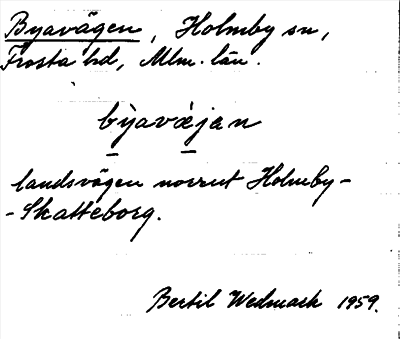 Byavägen, Holmby sn,
Frosta hd, Mlm. län.
bỳavǽjan
landsvägen norrut Holmby-
-Skatteborg.
Bertil Wedmark 1959.